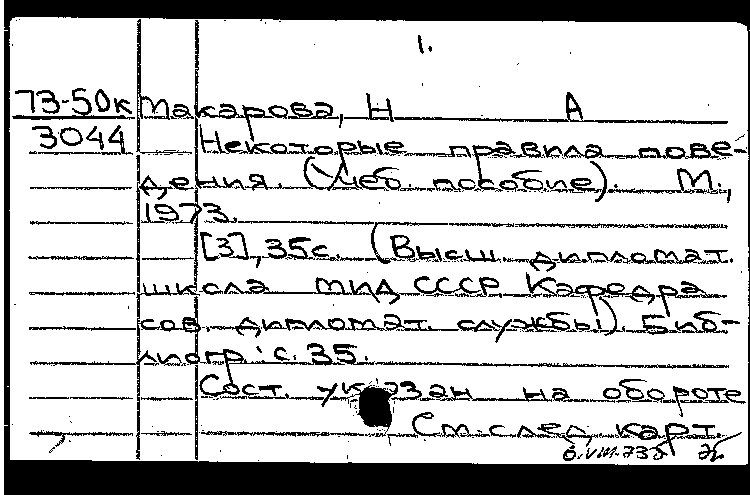 1.
73-50к Макарова, Н А
3044 Некоторые правила пове-
дения. (Учеб. пособие). М.,
1973.
[3], 35с. (Высш. дипломат.
школа МИД СССР. Кафедра
сов. дипломат. службы). Биб-
лиогр.: с. 35.
Сост. указан на обороте
См. след. карт.
6.VIII.73